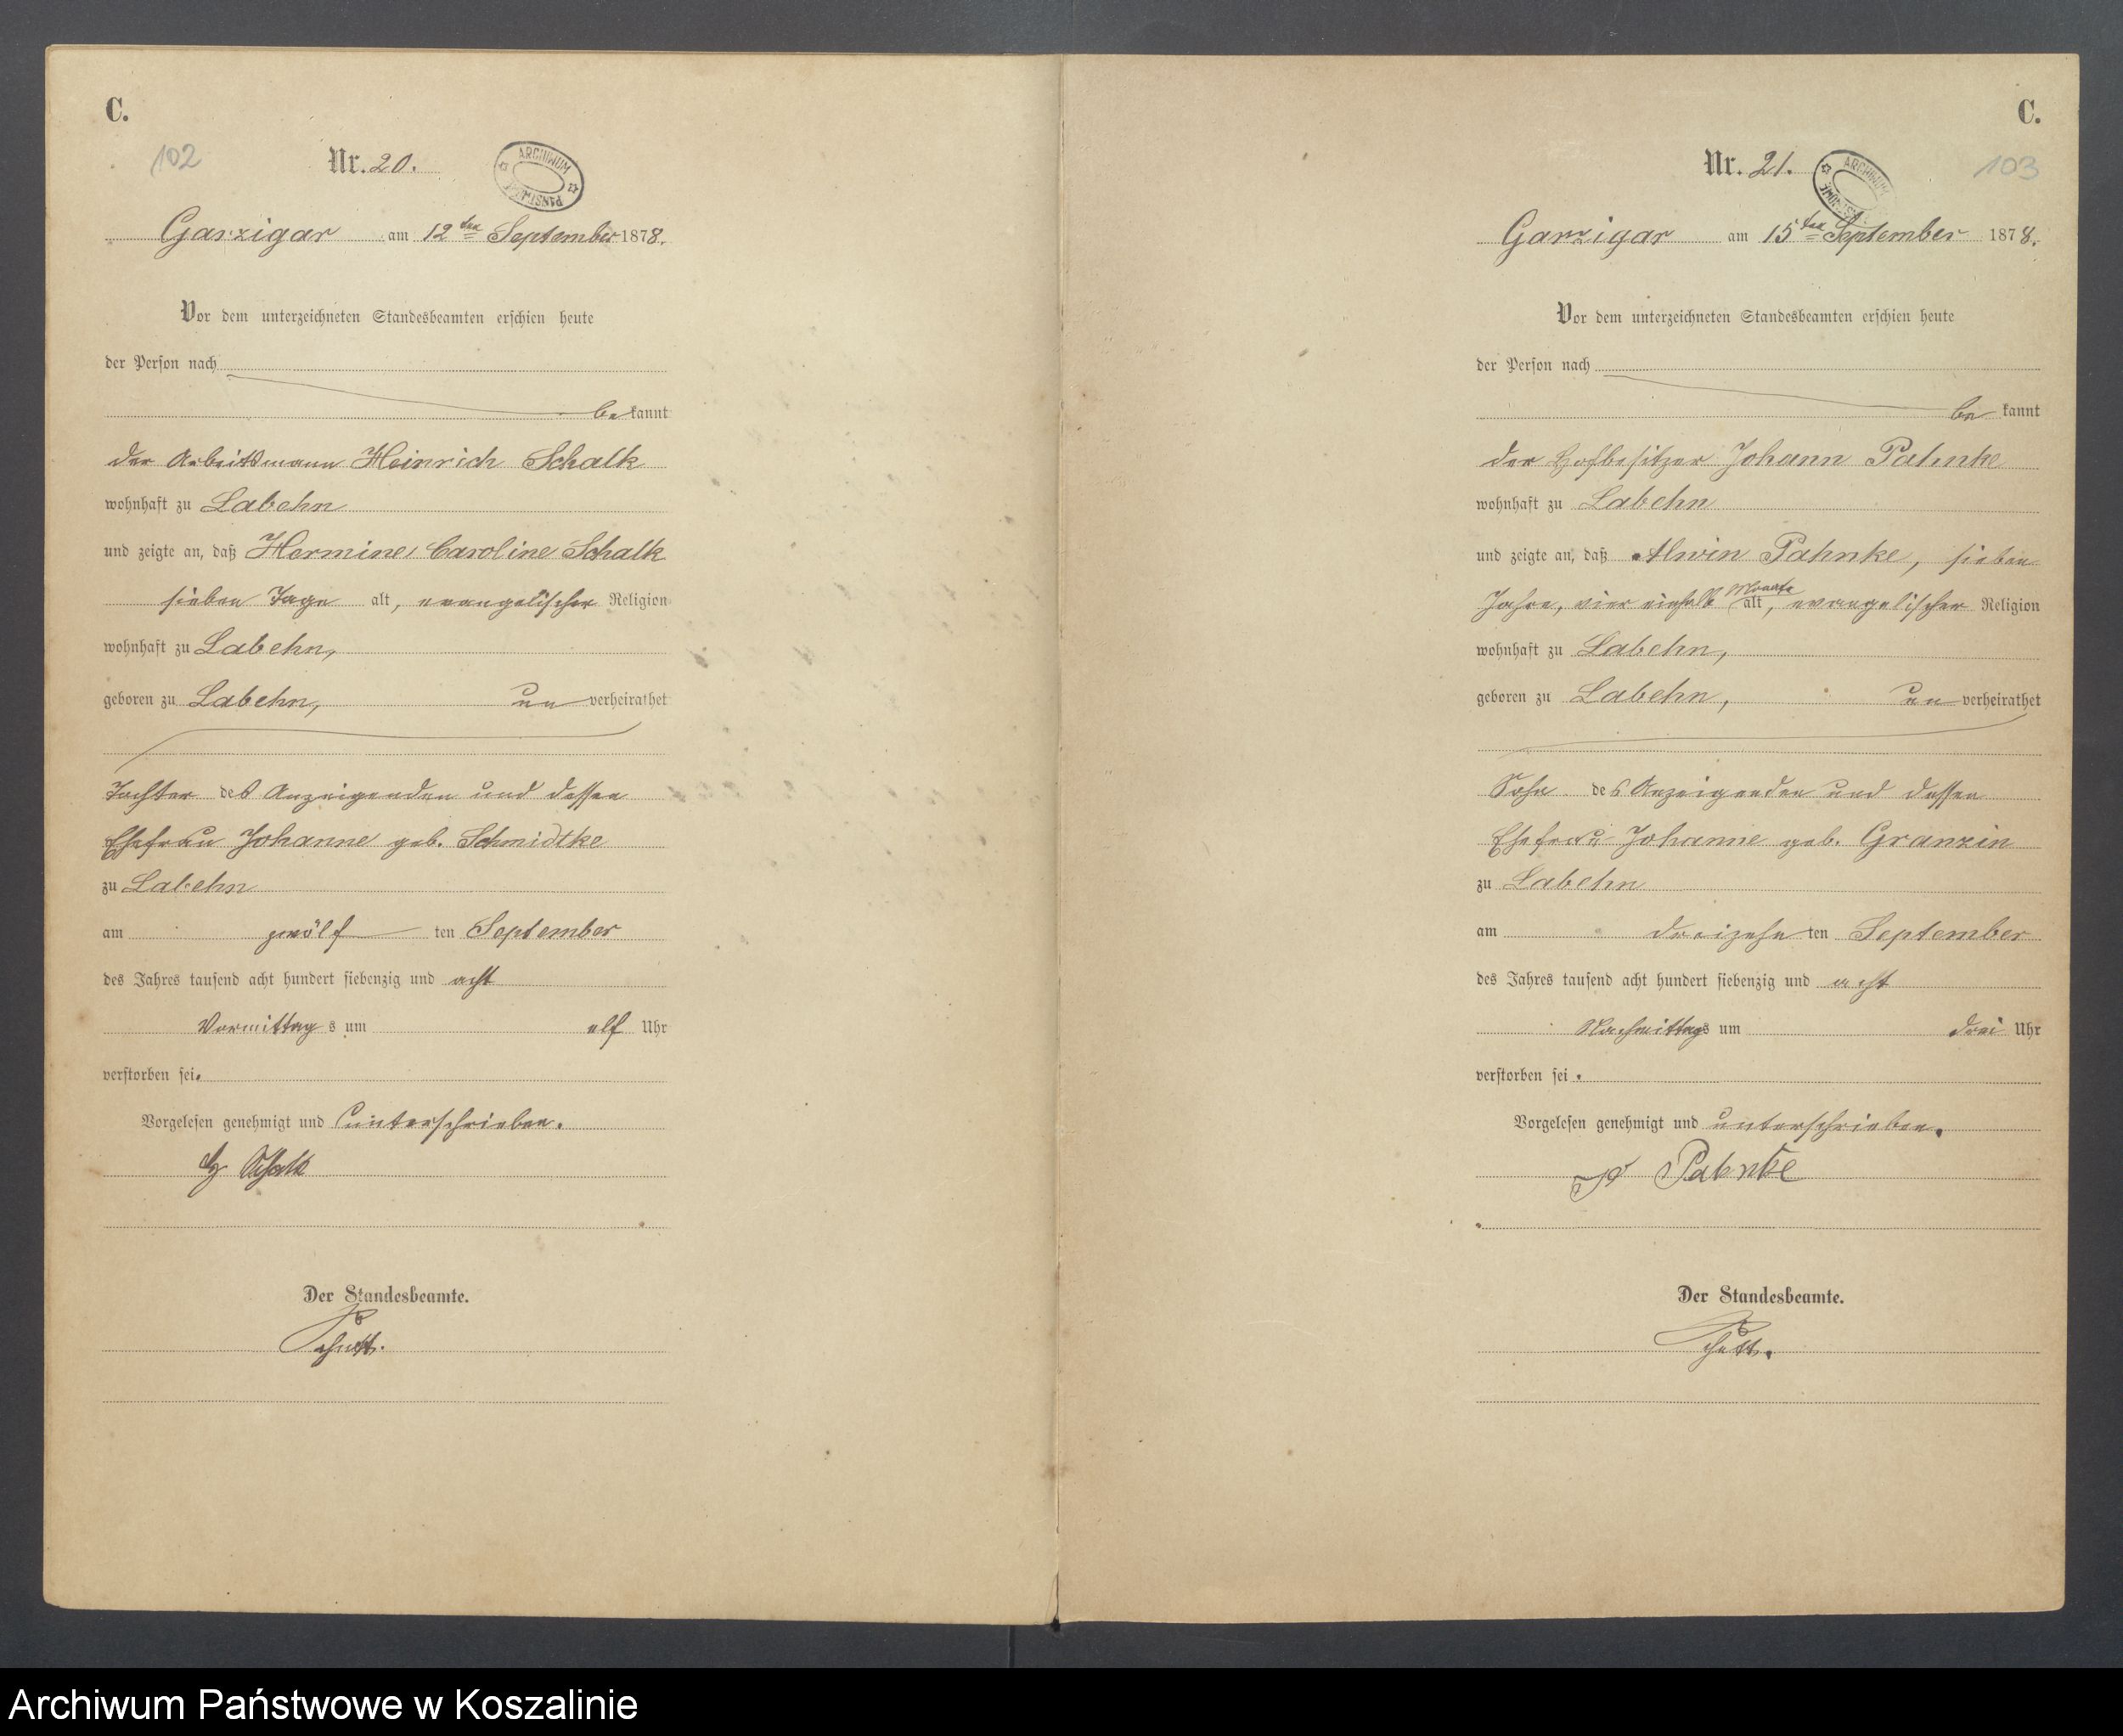 C.
102
Nr. 20.
ARCHIWUM PAŃSTWOWE
Garzigar am 12ten September 1878.
Vor dem unterzeichneten Standesbeamten erschien heute
der Person nach
bekannt
der Arbeitsmann Heinrich Schalk
wohnhaft zu Labehn
und zeigte an, daß Hermine Caroline Schalk
sieben Tage alt, evangelischer Religion
wohnhaft zu Labehn,
geboren zu Labehn, unverheirathet
Tochter des Anzeigenden und dessen
Ehefrau Johanne geb. Schmidtke
zu Labehn
am zwölften September
des Jahres tausend acht hundert siebenzig und acht
Vormittags um elf Uhr
verstorben sei.
Vorgelesen genehmigt und unterschrieben.
Schalk
Der Standesbeamte.
C.
Nr. 21.
103
ARCHIWUM
Garzigar am 15ten September 1878.
Vor dem unterzeichneten Standesbeamten erschien heute
der Person nach
bekannt
der Hofbesitzer Johann Pahnke
wohnhaft zu Labehn
und zeigte an, daß Alwin Pahnke, sieben
Jahre, vier einhalb Monate alt, evangelischer Religion
wohnhaft zu Labehn,
geboren zu Labehn, unverheirathet
Sohn des Anzeigenden und dessen
Ehefrau Johanne geb. Granzin
zu Labehn
am dreizehnten September
des Jahres tausend acht hundert siebenzig und acht
Nachmittags um drei Uhr
verstorben sei.
Vorgelesen genehmigt und unterschrieben.
Pahnke
Der Standesbeamte.
Archiwum Państwowe w Koszalinie